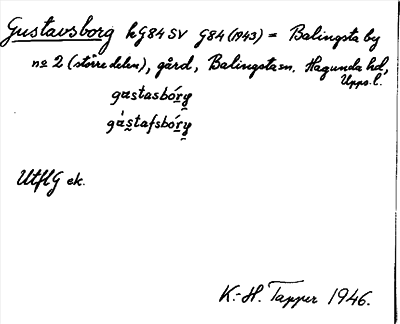 Gustavsborg hG84 SV G84 (1943) = Balingsta by
no 2 (större delen), gård, Balingsta sn. Hagunda hd,
Upps. l.
gastasbóry
gàstafsbóry
UtflG ek.
K.-H. Tapper 1946.